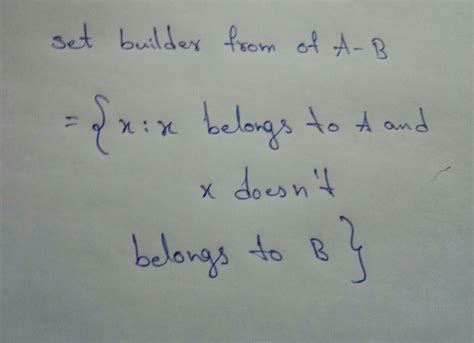 set builder from of A-B
= { x : x belongs to A and
x doesn't
belongs to B }